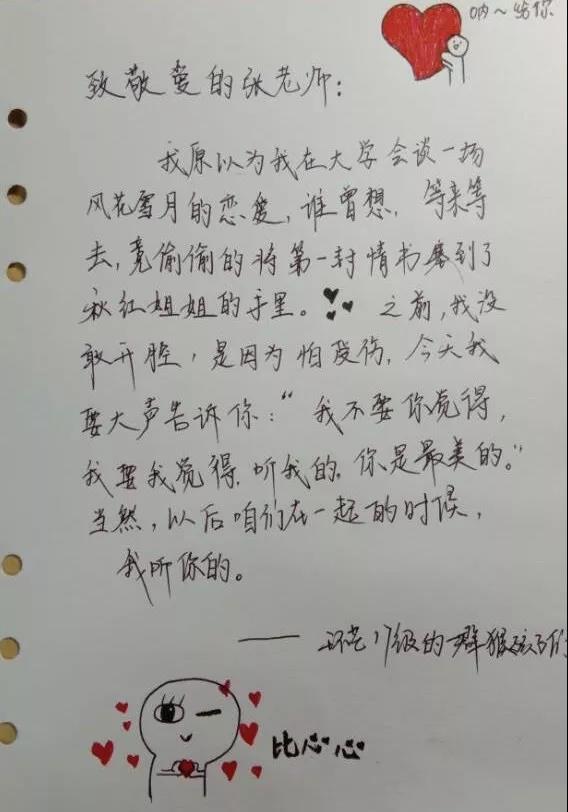 呐～给你
致敬爱的张老师：
我原以为我在大学会谈一场
风花雪月的恋爱，谁曾想，等来等
去，竟偷偷的将第一封情书塞到了
秋红姐姐的手里。之前，我没
敢开腔，是因为怕受伤，今天我
要大声告诉你：“我不要你觉得，
我要我觉得，听我的，你是最美的。”
当然，以后咱们在一起的时候，
我听你的。
——环艺17级的一群猴孩子们
比心心心